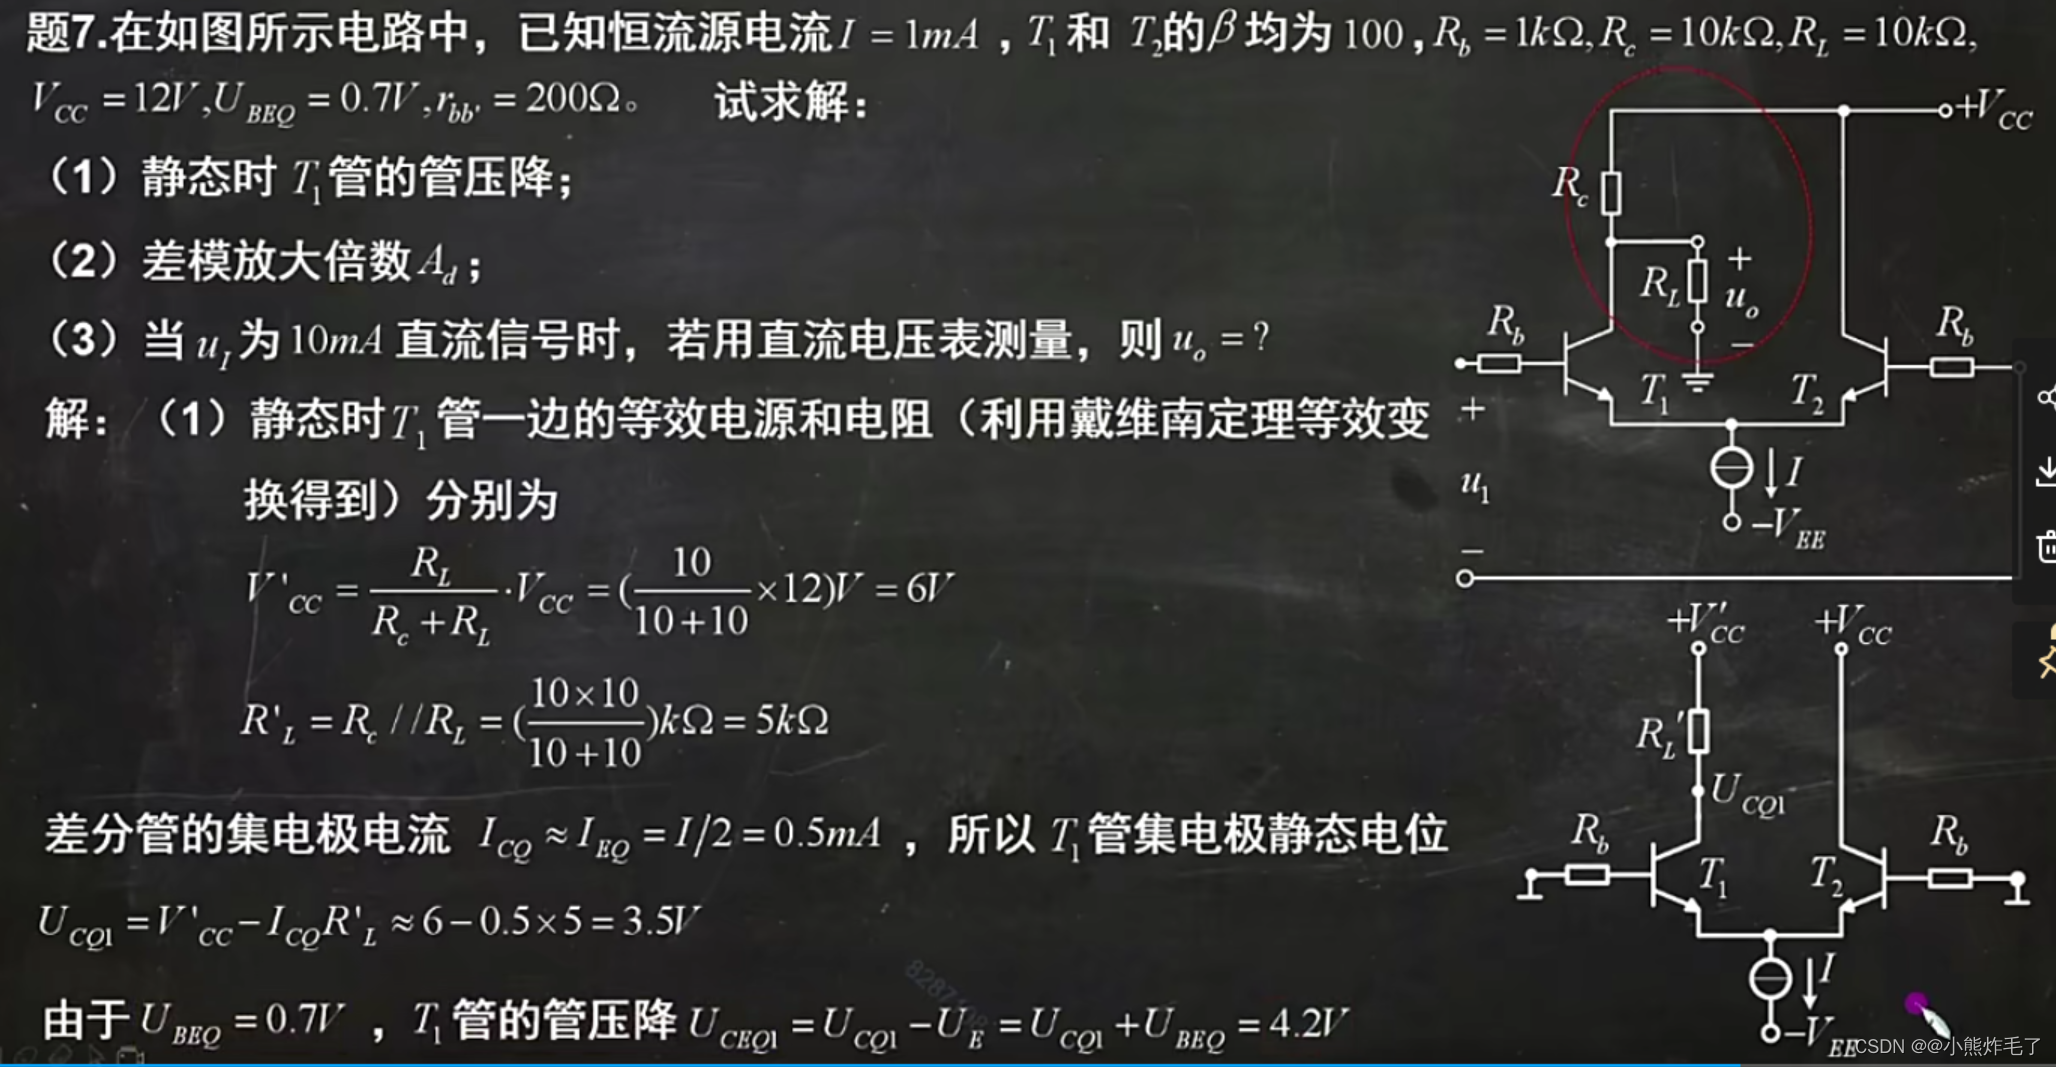 题7.在如图所示电路中，已知恒流源电流I = 1mA，T₁和 T₂的β均为100，R_b = 1kΩ, R_c = 10kΩ, R_L = 10kΩ,
V_CC = 12V, U_BEQ = 0.7V, r_bb' = 200Ω。 试求解：
（1）静态时 T₁管的管压降；
（2）差模放大倍数A_d；
（3）当 u_I为10mA 直流信号时，若用直流电压表测量，则u_o = ?
解：（1）静态时T₁管一边的等效电源和电阻（利用戴维南定理等效变
换得到）分别为
V'_CC = R_L/(R_c + R_L)·V_CC = (10/(10+10)×12)V = 6V
R'_L = R_c // R_L = (10×10/(10+10))kΩ = 5kΩ
差分管的集电极电流 I_CQ ≈ I_EQ = I/2 = 0.5mA，所以 T₁管集电极静态电位
U_CQ1 = V'_CC − I_CQ R'_L ≈ 6 − 0.5×5 = 3.5V
由于U_BEQ = 0.7V，T₁管的管压降U_CEQ1 = U_CQ1 − U_E = U_CQ1 + U_BEQ = 4.2V
+V_CC
R_c
+
R_L
u_o
−
R_b
R_b
T₁
T₂
+
I
u₁
−V_EE
−
+V'_CC
+V_CC
R_L'
U_CQ1
R_b
R_b
T₁
T₂
I
−V_EE
CSDN @@小熊炸毛了